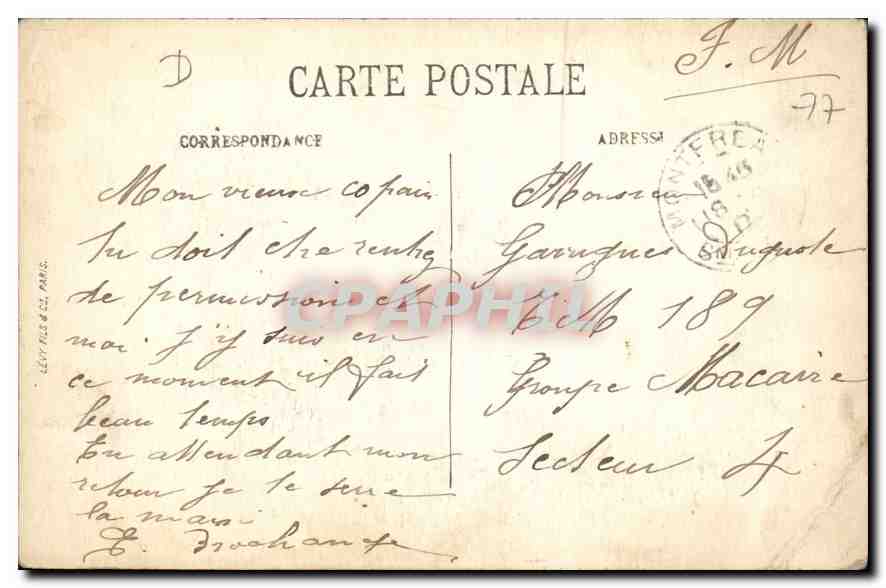 D
F. M
77
CARTE POSTALE
CORRESPONDANCE
ADRESSE
Mon vieux copain
tu doit etre rentrez
de permission et
moi j'y suis en
ce moment il fait
beau temps
En attendant mon
retour je te serre
la main
E.
Monsieur
Auguste
T M 189
Groupe Macaire
Secteur 4
MONTFREA
18
LÉVY FILS & CO, PARIS.
CPAPHIL